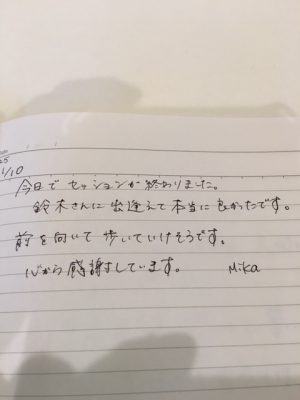 25
1/10
今日で セッションが 終わりました。
鈴木さんに 出逢えて 本当に 良かったです。
前を向いて 歩いていけそうです。
心から感謝しています。 Mika